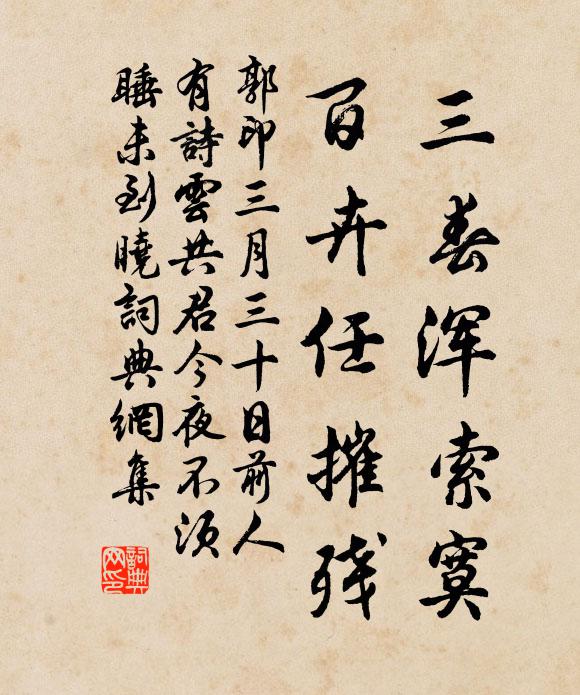 三春浑索寞
百卉任摧残
郭印三月三十日前人
有詩雲共君今夜不須
睡未到曉詞典網集
詞典网印